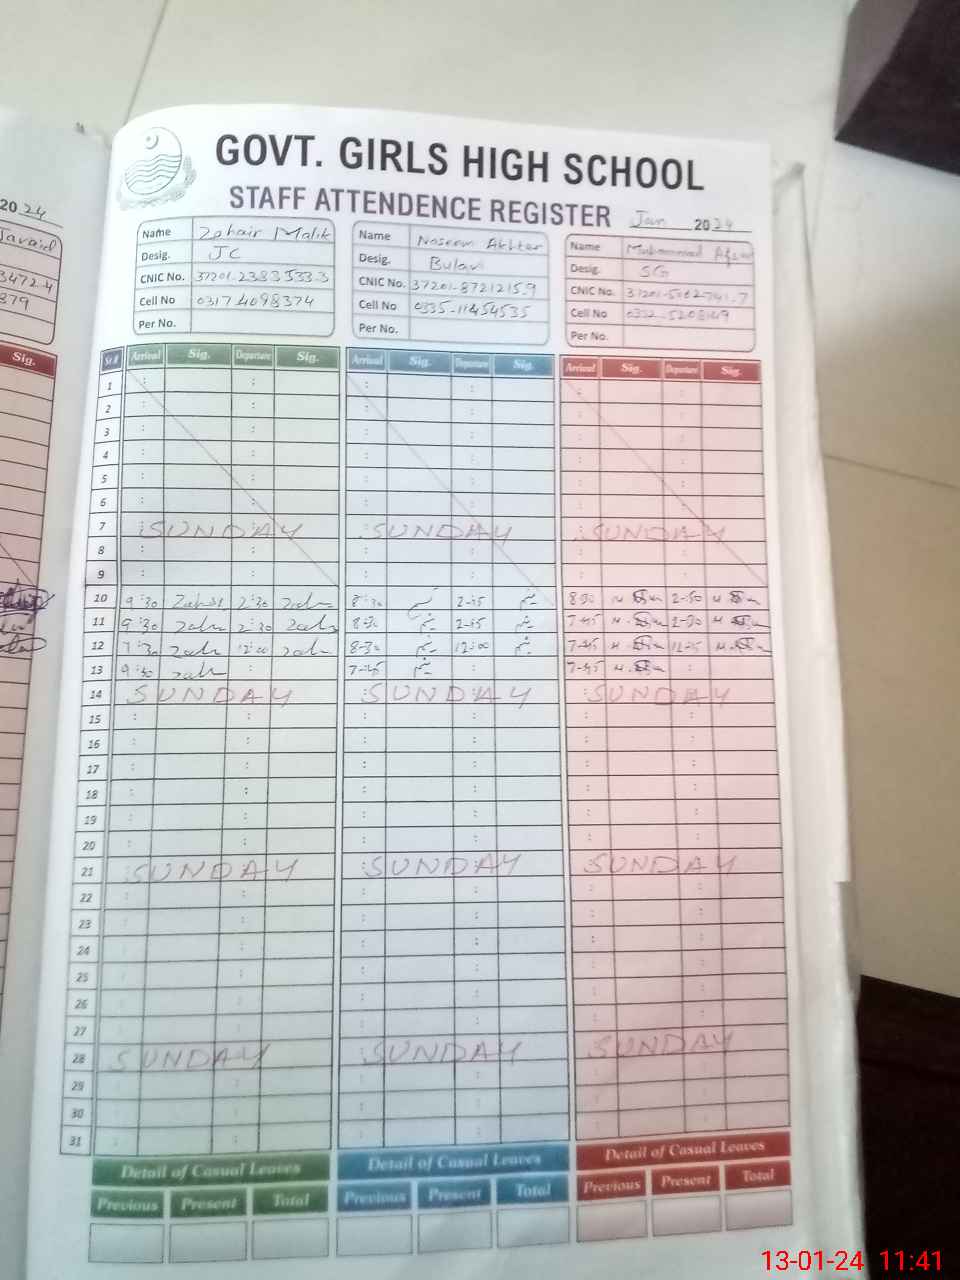 GOVT. GIRLS HIGH SCHOOL
STAFF ATTENDENCE REGISTER Jan 2024
2024
Javaid
3472-4
879
Sig.
Name Zahair Malik
Desig. JC
CNIC No. 37201-2383533-3
Cell No 03174098374
Per No.
Name Naseem Akhter
Desig. Bulavi
CNIC No. 37201-8721215-9
Cell No 0335-11454535
Per No.
Name Muhammad
Desig. SG
CNIC No.
Cell No
Per No.
Sr.# Arrival Sig. Departure Sig. Arrival Sig. Departure Sig. Arrival Sig. Departure Sig.
1
2
3
4
5
6
7 SUNDAY SUNDAY SUNDAY
8
9
10 9:30 2:30 8:30 2-15 8-30 2-30
11 9:30 2:30 8-30 2-15 7-45 2-30
12 12:00 8-30 12:00 7-45 12-15
13 9:30 7-45 7-45
14 SUNDAY SUNDAY SUNDAY
15
16
17
18
19
20
21 SUNDAY SUNDAY SUNDAY
22
23
24
25
26
27
28 SUNDAY SUNDAY SUNDAY
29
30
31
Detail of Casual Leaves Detail of Casual Leaves Detail of Casual Leaves
Previous Present Total Previous Present Total Previous Present Total
13-01-24 11:41